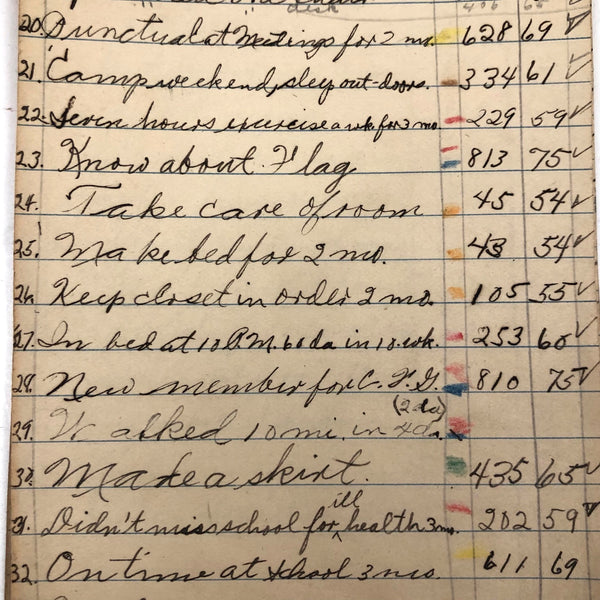 desk 406 65
20. Punctual at Meetings for 2 mo. 628 69 ✓
21. Camp weekend, sleep out-doors. 334 61 ✓
22. Seven hours exercise a wk. for 3 mo. 229 59 ✓
23. Know about Flag 813 75 ✓
24. Take care of room 45 54 ✓
25. Make bed for 2 mo. 43 54 ✓
26. Keep closet in order 2 mo. 105 55 ✓
27. In bed at 10 P.M. 60 da in 10. wk. 253 60 ✓
28. New member for C. F. G. 810 75 ✓
29. Walked 10 mi. in 4 da. (2 da)
30. Made a skirt. 435 65 ✓
31. Didn't miss school for ill health 3 mo. 202 59 ✓
32. On time at school 3 mo. 611 69